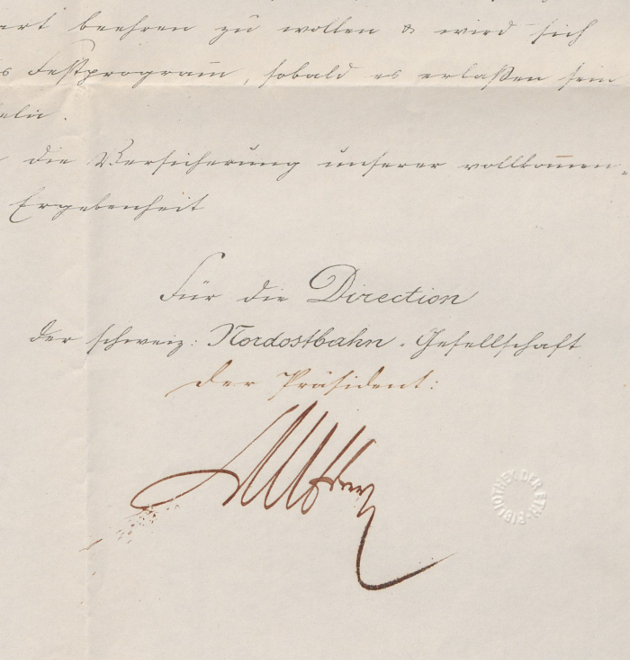 art beehren zu wollen & wird sich
s Festprogram̅, sobald es erlaßen sein
eln.
die Versicherung unserer vollkom̅en-
Ergebenheit
Für die Direction
der schweiz: Nordostbahn-Gesellschaft
der Präsident:
BIBLIOTHEK DER ETH